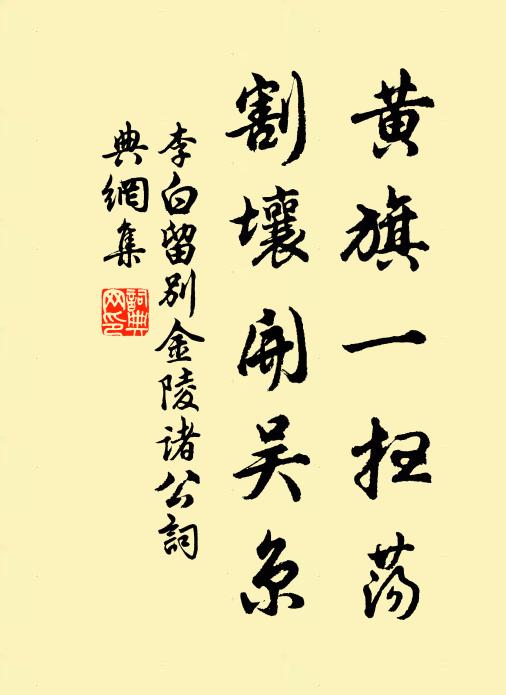 黄旗一扫荡
割壤開吴京
李白留别金陵诸公詞
典網集
詞典網印